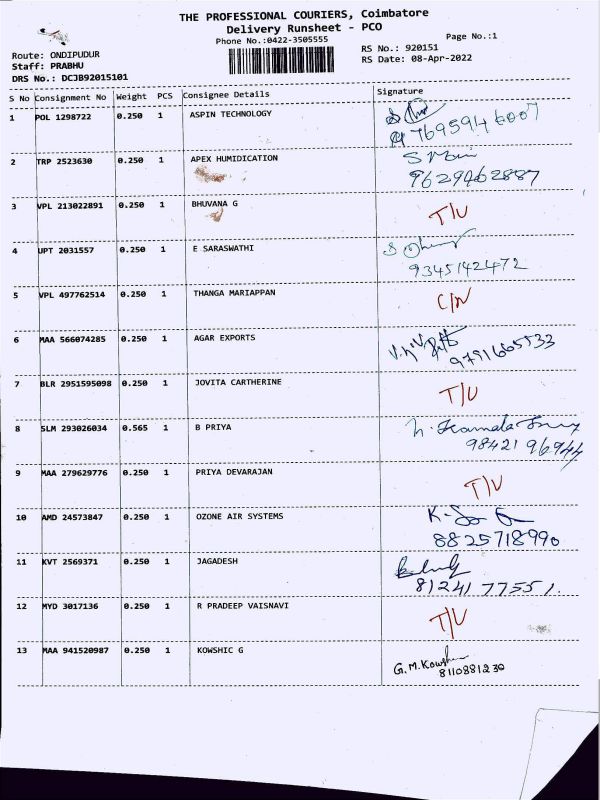 THE PROFESSIONAL COURIERS, Coimbatore
Delivery Runsheet - PCO
Phone No.:0422-3505555
Page No.:1
Route: ONDIPUDUR
RS No.: 920151
Staff: PRABHU
RS Date: 08-Apr-2022
DRS No.: DCJB92015101
S No Consignment No Weight PCS Consignee Details Signature
1 POL 1298722 0.250 1 ASPIN TECHNOLOGY
7695946007
2 TRP 2523630 0.250 1 APEX HUMIDICATION
9629462887
3 VPL 213022891 0.250 1 BHUVANA G T/U
4 UPT 2031557 0.250 1 E SARASWATHI
9345142472
5 VPL 497762514 0.250 1 THANGA MARIAPPAN C/N
6 MAA 566074285 0.250 1 AGAR EXPORTS
9791665533
7 BLR 2951595098 0.250 1 JOVITA CARTHERINE T/U
8 SLM 293026034 0.565 1 B PRIYA
98421 96944
9 MAA 279629776 0.250 1 PRIYA DEVARAJAN T/U
10 AMD 24573847 0.250 1 OZONE AIR SYSTEMS
8825718990
11 KVT 2569371 0.250 1 JAGADESH
81241 77551
12 MYD 3017136 0.250 1 R PRADEEP VAISNAVI T/U
13 MAA 941520987 0.250 1 KOWSHIC G
G.M.Kowshic
8110881230